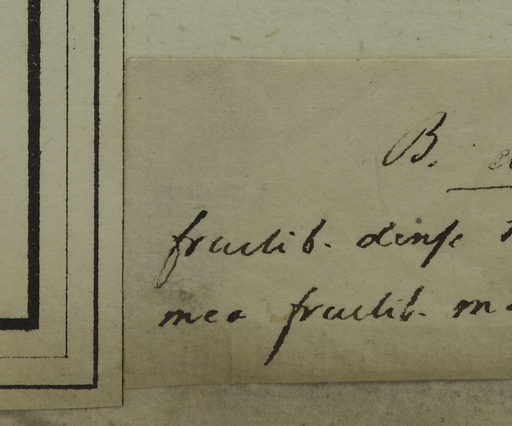 B.
fructib. dense
mea fructib.